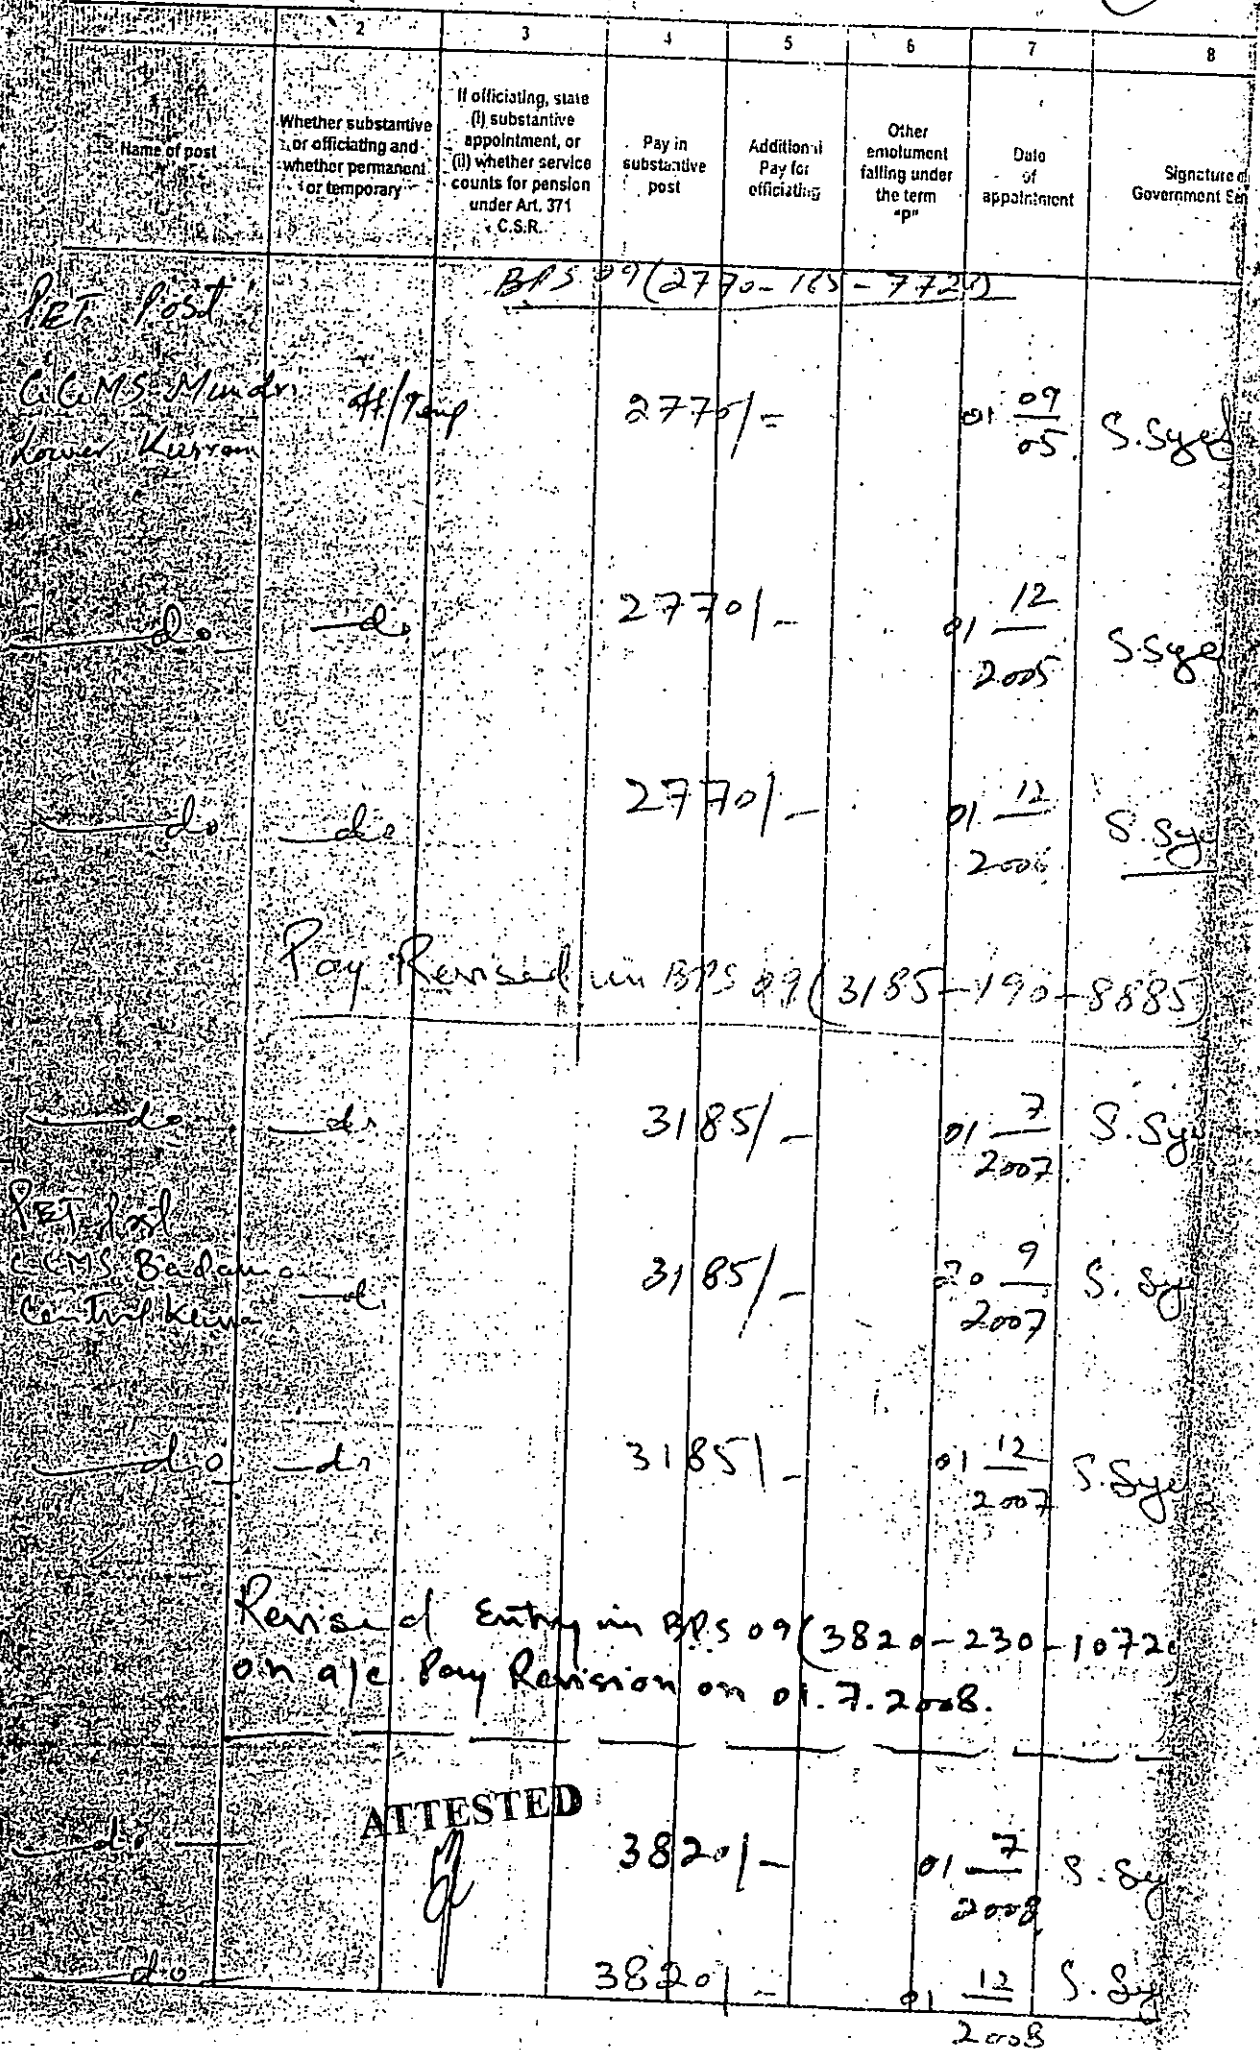 1 2 3 4 5 6 7 8
Name of post
Whether substantive
or officiating and
whether permanent
or temporary
If officiating, state
(i) substantive
appointment, or
(ii) whether service
counts for pension
under Art. 371
C.S.R.
Pay in
substantive
post
Additional
Pay for
officiating
Other
emolument
falling under
the term
"P"
Date
of
appointment
Signature of
Government Ser
BPS 09 (2770-165-7720)
PET Post
GGMS
Lower Kurram
2770/= 01 09/05 S.Sye
do do 2770/- 01 12/2005 S.Sye
do do 2770/- 01 12/2006 S.Sye
Pay Revised in BPS 09 (3185-190-8885)
do do 3185/- 01 7/2007 S.Sye
PET Post
GGMS
Central
do 3185/- 20 9/2007 S.Sy
do do 3185/- 01 12/2007 S.Sye
Revised Entry in BPS 09 (3820-230-10720
on a/c Pay Revision on 01.7.2008.
ATTESTED
do 3820/- 01 7/2008 S.Sy
do 3820/- 01 12/2008 S.Sy